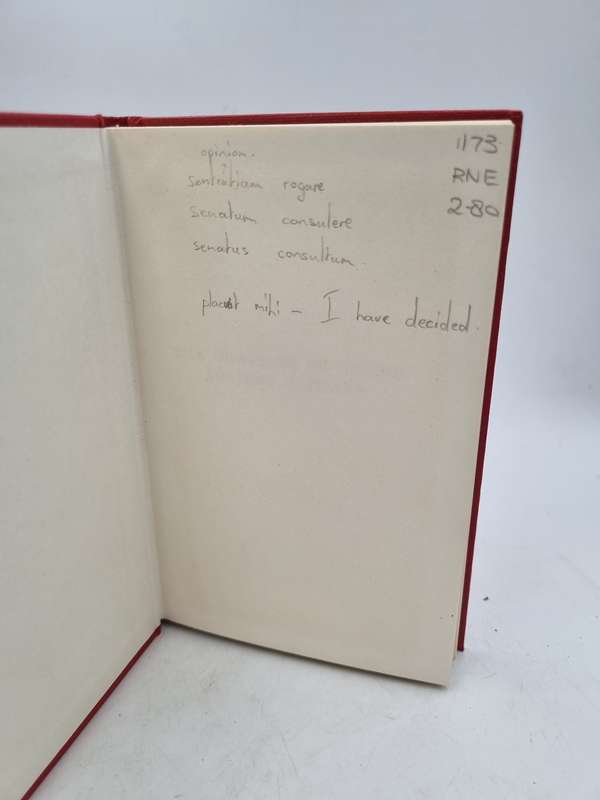 opinion.
sentatiam rogare
senatum consulere
senatus consultum.
placuit mihi - I have decided.
1173
RNE
2-80